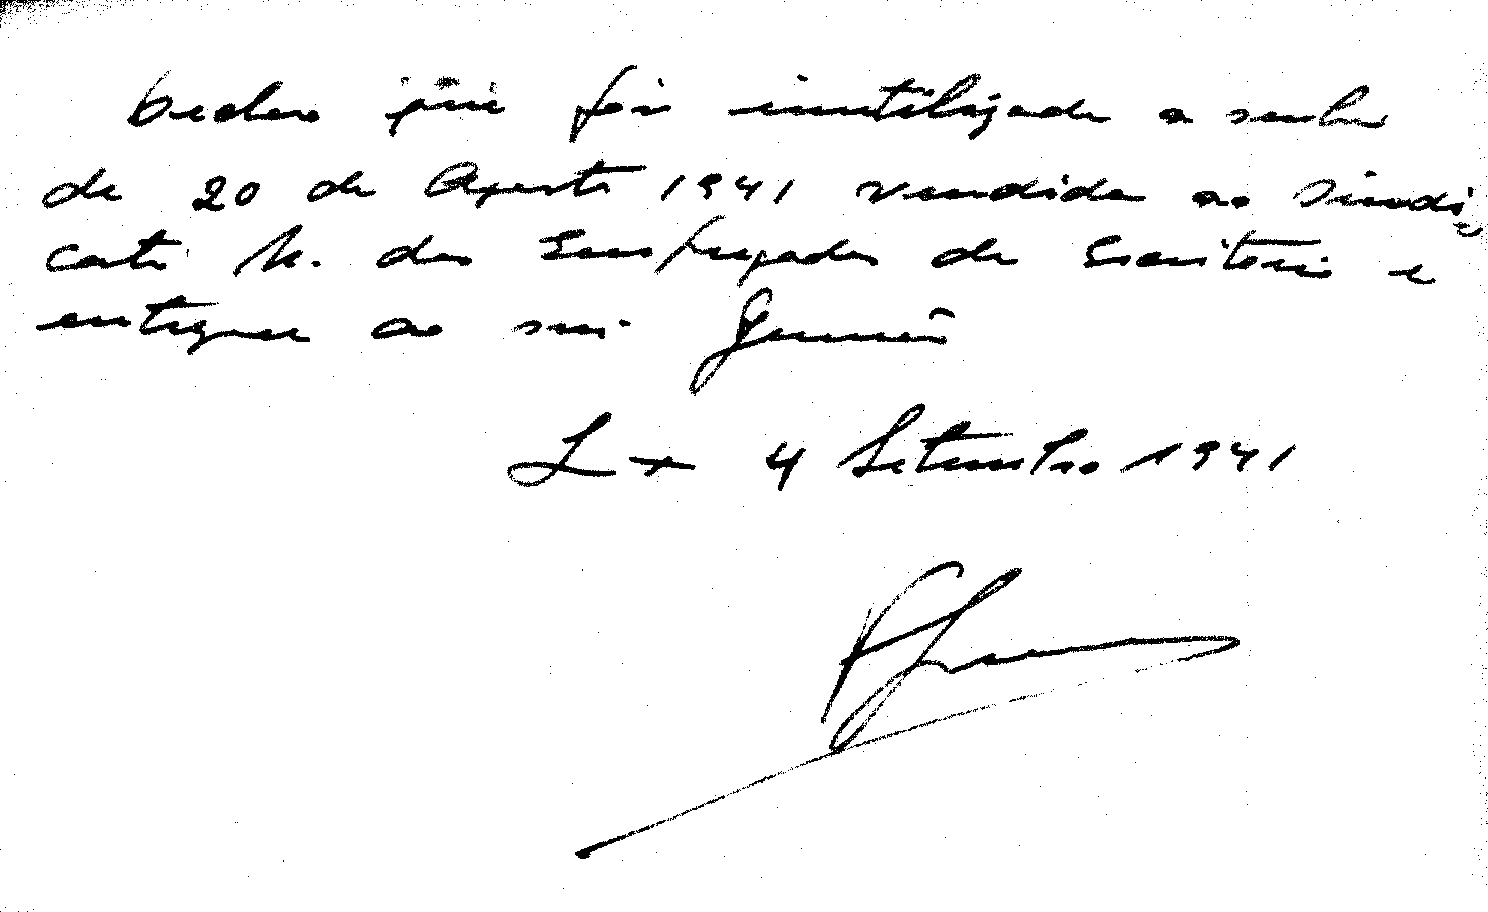 Declaro que foi inutilizada a senha
de 20 de Agosto 1941 vendida ao Sindi
cato N. dos Empregados de Escritorio e
entregue ao snr.
Lx 4 Setembro 1941